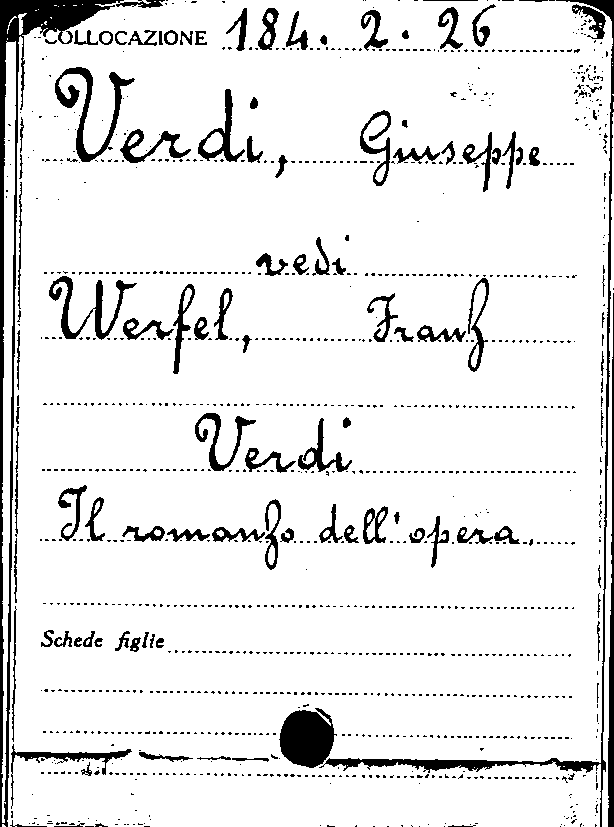 COLLOCAZIONE 184. 2. 26
Verdi, Giuseppe
vedi
Werfel, Franz
Verdi
Il romanzo dell'opera.
Schede figlie